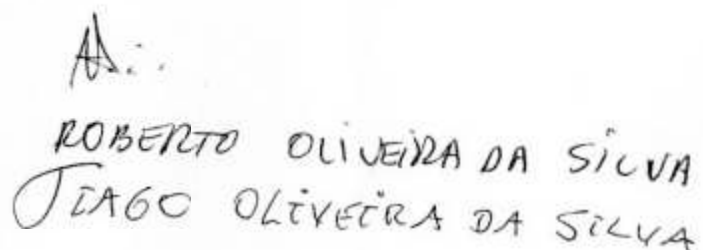 A.:.
ROBERTO OLIVEIRA DA SILVA
TIAGO OLIVEIRA DA SILVA